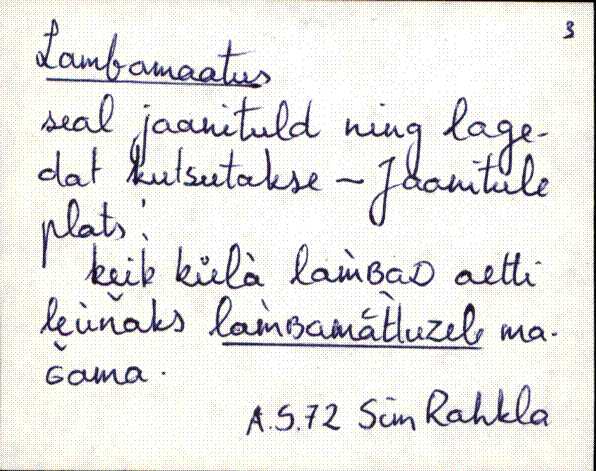 3
Lambamaatus
seal jaanituld ning lage-
dat kutsutakse – Jaanitule
plats.
keik külà lam̀ʙaᴅ aetti
leùňaks lam̀ʙamāttuzele ma-
ɢama.
A.S.72 Sim Rahkla